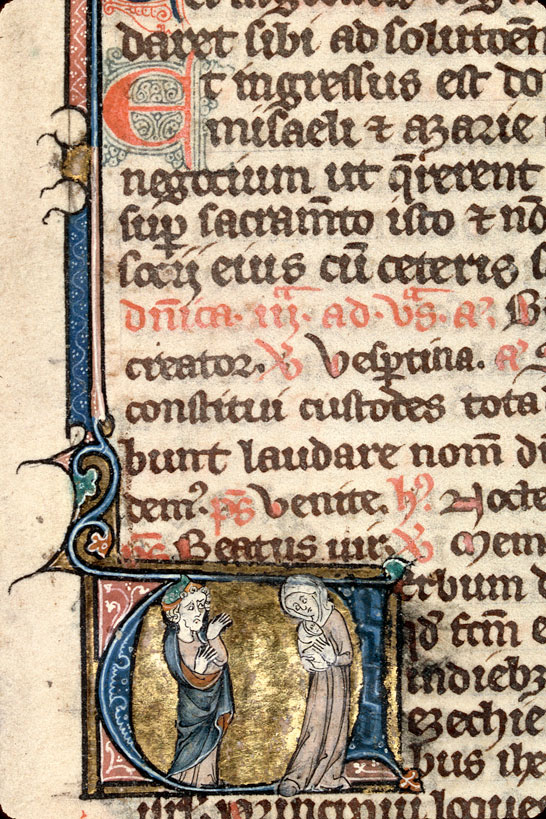 daret sibi ad solutõẽ
Et ingressus est do
misaeli ⁊ azarie
negotium ut q̃rerent
sup̱ sacram̃to isto ⁊ nõ
socij eius cũ ceteris s
dñica. iijᵃ. ad. vᵃ̃s. aᵃ. B
creator. ℣ vesp̱tina. aᵃ
constitui custodes tota
bunt laudare nom̃ di
dem.ꝰ p̃s venite. hꝰ. Nocte
p̃s Beatus uir. ℣ Mem
Verbum d
qd̃ fcm̃ e
indiebꝫ
ezechie
bus ihe
isrł. Principiũ loque